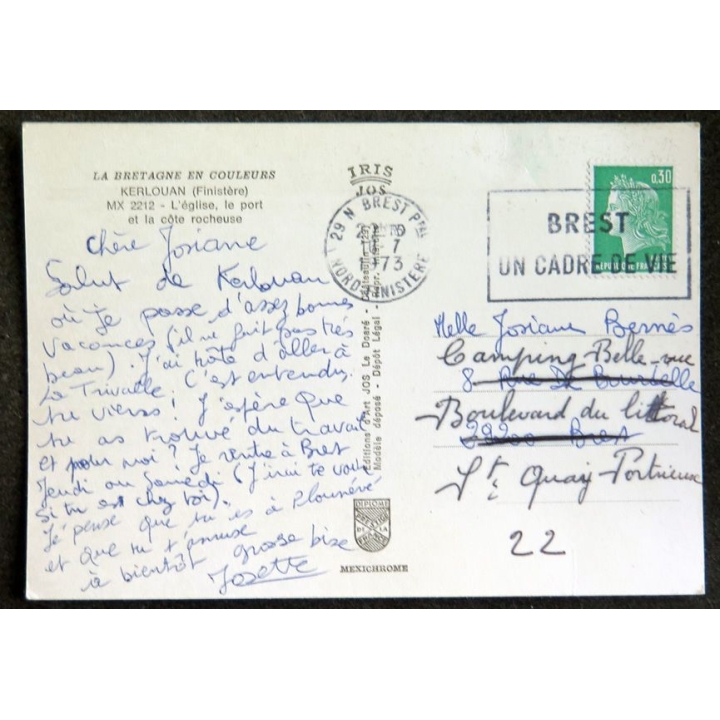 LA BRETAGNE EN COULEURS
KERLOUAN (Finistère)
MX 2212 - L'église, le port
et la côte rocheuse
Chère Josiane
Salut de Kerlouan
où je passe d'assez bonnes
vacances (il ne fait pas très
beau). J'ai hâte d'aller à
La Trivalle. C'est entendu,
tu viens! J'espère que
tu as trouvé du travail
et pour moi? Je rentre à Brest
Jeudi ou Samedi (J'irai te voir
si tu est chez toi).
Je pense que tu es à Plounévé
et que tu t'amuse
à bientôt grosse bise
Josette
IRIS
JOS
Editions d'Art JOS Le Doaré - Châteaulin
Modèle déposé - Dépôt Légal
MEXICHROME
29 N BREST Ppal
7
1973
NORD-FINISTERE
BREST
UN CADRE DE VIE
0,30
REPUBLIQUE FRANCAISE
Melle Josiane Bernès
Camping-Belle-vue
8 Rue De
Boulevard du littoral
29200 Brest
St Quay-Portrieux
22